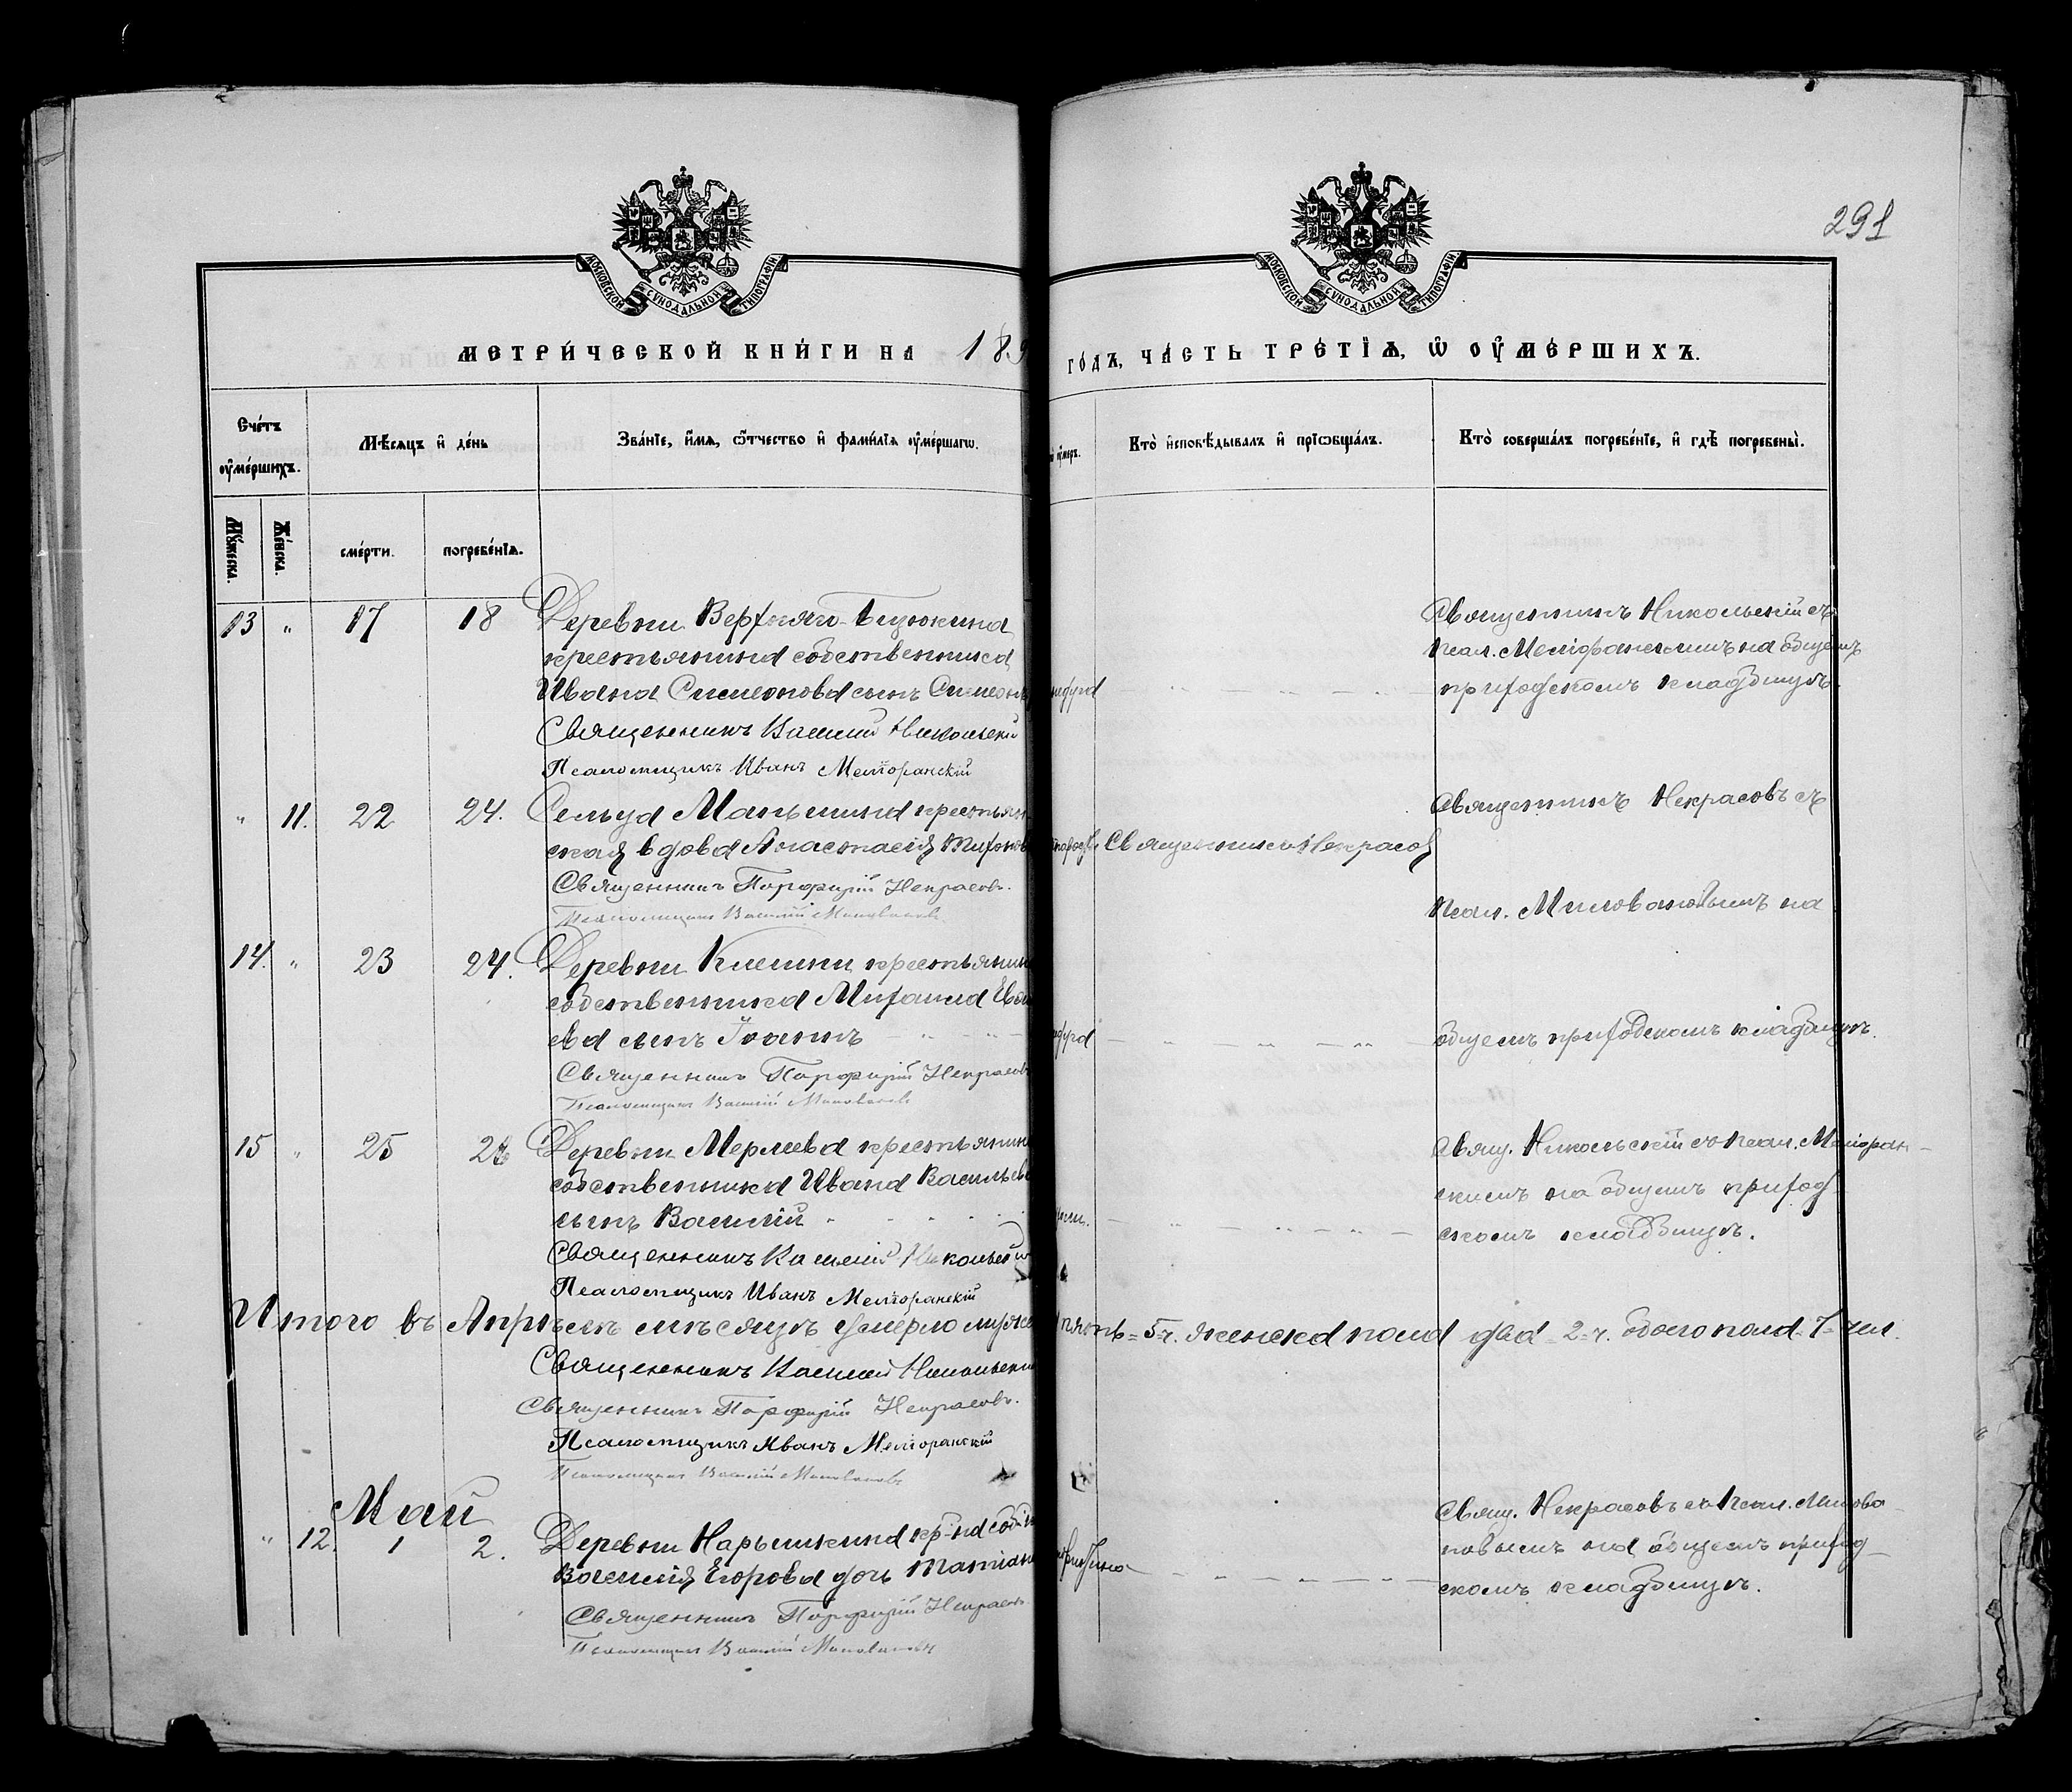 291
МОСКОВСКОЙ СУНОДАЛЬНОЙ ТИПОГРАФІИ
МОСКОВСКОЙ СУНОДАЛЬНОЙ ТИПОГРАФІИ
МЕТРИ́ЧЕСКОЙ КНИ́ГИ НА 189
ГО́ДЪ, ЧА́СТЬ ТРЕ́ТІѦ, Ѽ ОУ҆МЕ́РШИХЪ.
Сче́тъ оу҆ме́ршихъ.
Мѣ́сяцъ и҆ де́нь
Зва́нїе, и҆́мѧ, ѻ҆́тчество и҆ фами́лїѧ оу҆ме́ршагѡ.
оу҆́меръ.
Кто̀ и҆сповѣ́дывалъ и҆ прїѡбща́лъ.
Кто̀ соверша́лъ погребе́нїе, и҆ гдѣ̀ погребены̀.
Му́жеска.
Же́нска.
сме́рти.
погребе́нїѧ.
13 " 17 18 Деревни
крестьянина собственника
Ивана Симеонова сынъ Симеонъ
Священникъ Василий Никольский
Псаломщикъ Иванъ Мелиоранскій
Священникъ Никольскій съ
псал. Мелиоранскимъ на общемъ
приходскомъ кладбищѣ.
" 11. 22 24. Сельца Маньшина крестьян
ская вдова Анастасія Тихонов
Священникъ Порфирій Некрасовъ.
Псаломщикъ Василій Миловановъ
Священникъ Некрасовъ
Священникъ Некрасовъ съ
псал. Миловановымъ на
14. " 23 24. Деревни крестьянина
собственника Михаила
ева сынъ Іоаннъ
Священникъ Порфирій Некрасовъ
Псаломщикъ Василій Миловановъ
общемъ приходскомъ кладбищѣ.
15 " 25 Деревни Мерлева крестьянина
собственника Ивана Васильева
сынъ Василій
Священникъ Василий Никольский
Псаломщикъ Иванъ Мелиоранскій
Свящ. Никольскій съ псал. Мелиоран-
скимъ на общемъ приход-
скомъ кладбищѣ.
Итого въ Апрѣлѣ мѣсяцѣ умерло мужска пять = 5 ч. женска пола два = 2 ч. обоего пола - 7 - чел.
Священникъ Василий Никольский
Священникъ Порфирій Некрасовъ.
Псаломщикъ Иванъ Мелиоранскій
Псаломщикъ Василій Миловановъ
Май
" 12. 1 2. Деревни Нарышкина кр-на соб-ка
Василія Егорова дочь Татіана
Священникъ Порфирій Некрасовъ
Псаломщикъ Василій Миловановъ
Свящ. Некрасовъ съ псал. Милова-
новымъ на общемъ приход-
скомъ кладбищѣ.